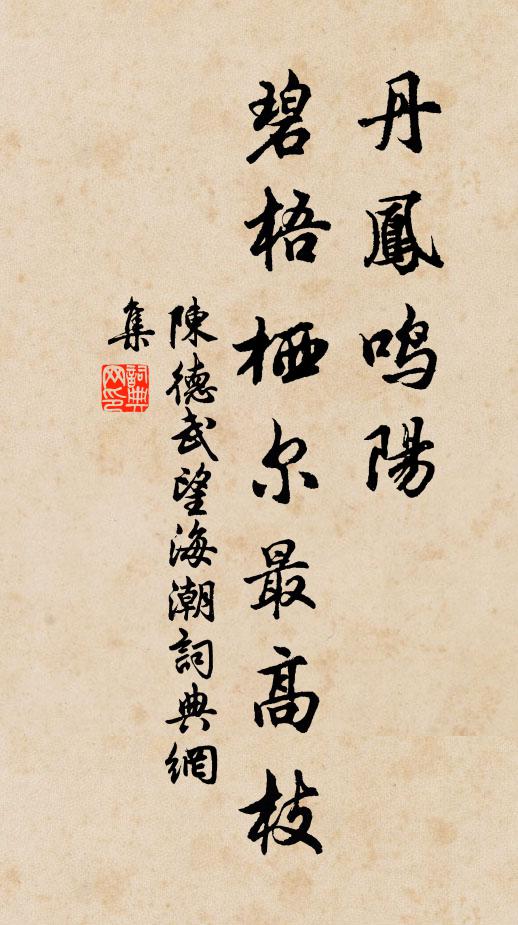 丹鳳鳴陽
碧梧栖尔最高枝
陳德武望海潮詞典網
集
詞典網印